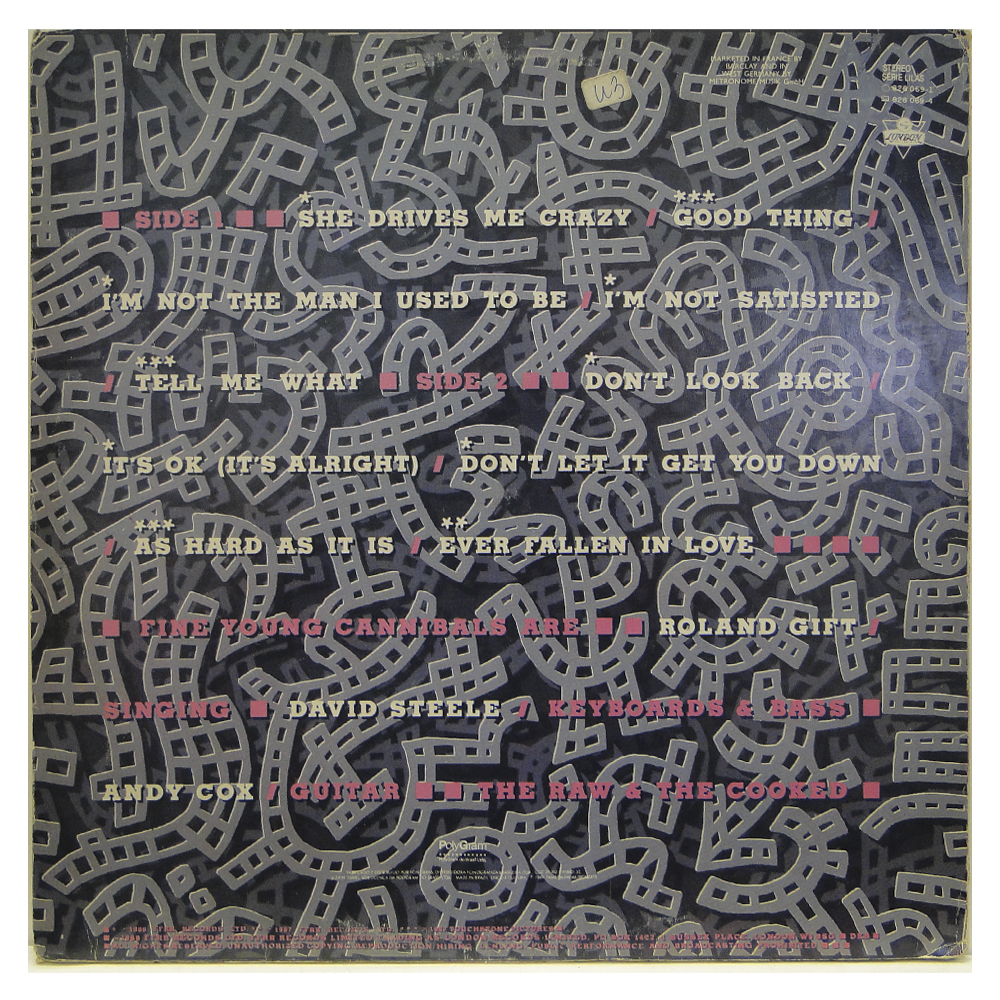 MARKETED IN FRANCE BY
BARCLAY AND IN
WEST GERMANY BY
METRONOME MUSIK GmbH
STEREO
SERIE LILAS
828 069-1
828 069-4
LONDON
■ SIDE 1 ■ ■ *SHE DRIVES ME CRAZY / ***GOOD THING /
*I'M NOT THE MAN I USED TO BE / *I'M NOT SATISFIED
/ ***TELL ME WHAT ■ SIDE 2 ■ ■ *DON'T LOOK BACK /
*IT'S OK (IT'S ALRIGHT) / *DON'T LET IT GET YOU DOWN
/ ***AS HARD AS IT IS / **EVER FALLEN IN LOVE ■ ■ ■ ■
■ FINE YOUNG CANNIBALS ARE ■ ■ ROLAND GIFT /
SINGING ■ DAVID STEELE / KEYBOARDS & BASS ■
ANDY COX / GUITAR ■ ■ THE RAW & THE COOKED ■
PolyGram